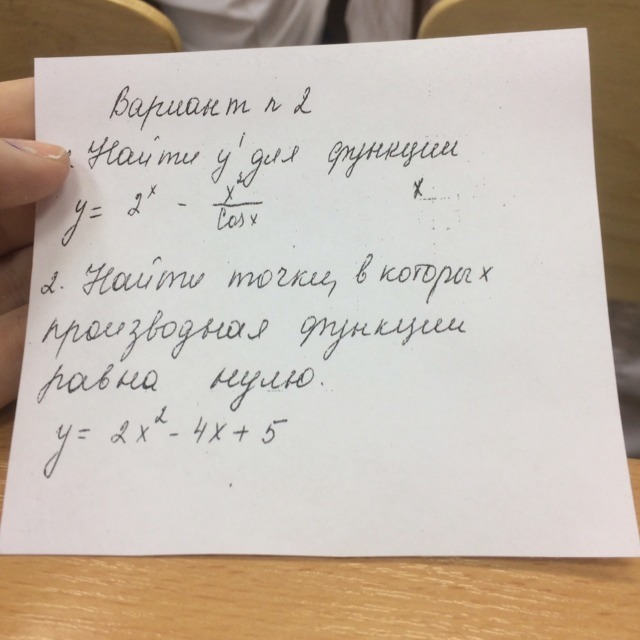 Вариант n 2
1. Найти y' для функции
y = 2^x - x^2/cos x
x
2. Найти точки, в которых
производная функции
равна нулю.
y = 2x^2 - 4x + 5